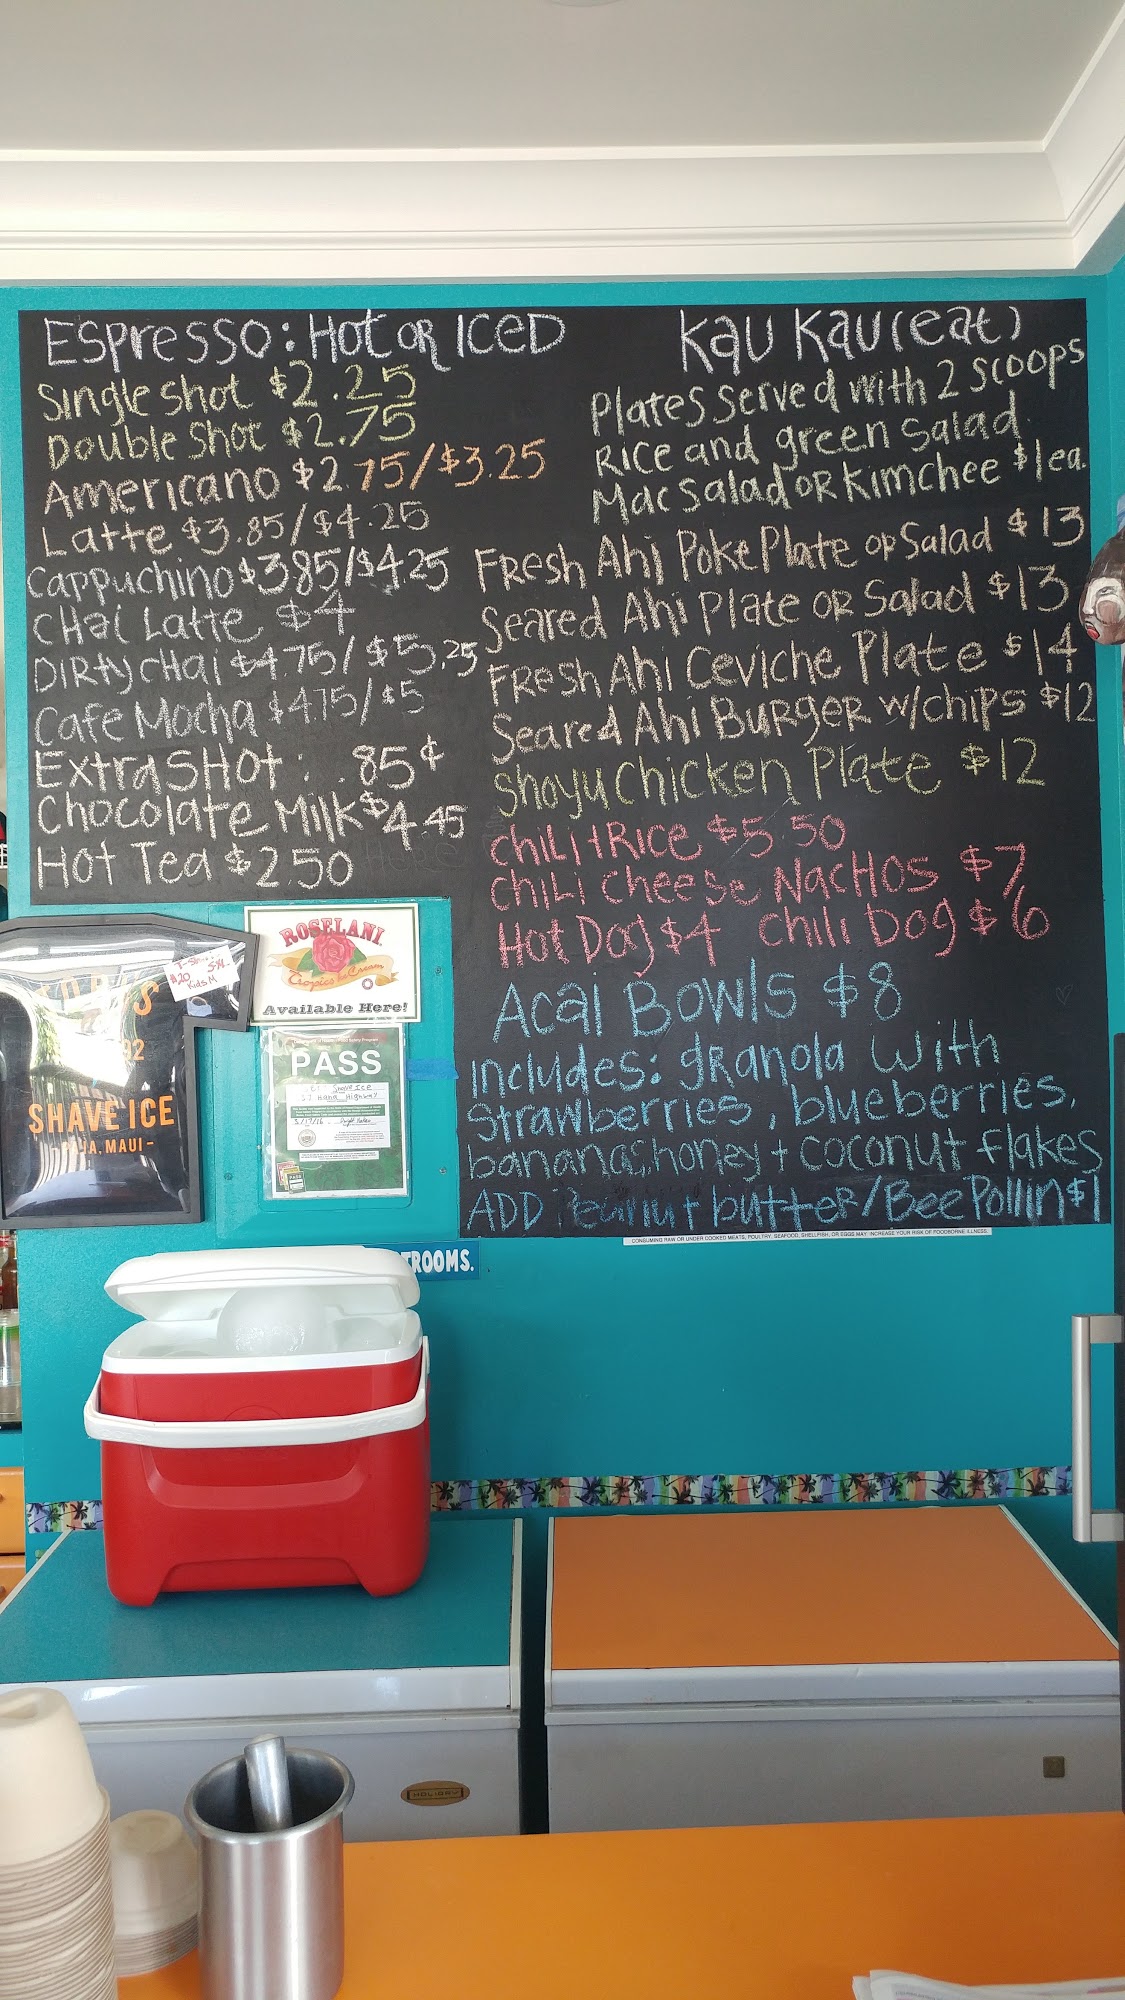 Espresso: Hot or Iced
Single shot $2.25
Double Shot $2.75
Americano $2.75/$3.25
Latte $3.85/$4.25
Cappuchino $3.85/$4.25
Chai Latte $4
Dirty Chai $4.75/$5.25
Cafe Mocha $4.75/$5
Extra SHot . . 85¢
Chocolate Milk $4.45
Hot Tea $2.50
Kau Kau (eat)
Plates served with 2 scoops
Rice and green salad
Mac Salad or Kimchee $1ea.
Fresh Ahi Poke Plate or Salad $13
Seared Ahi Plate or Salad $13
Fresh Ahi Ceviche Plate $14
Seared Ahi Burger w/chips $12
Shoyu Chicken Plate $12
Chili + Rice $5.50
Chili Cheese Nachos $7
Hot Dog $4 Chili Dog $6
Acai Bowls $8
Includes: granola with
strawberries, blueberries,
bananas, honey + coconut flakes
ADD Peanut butter/Bee Pollin $1
CONSUMING RAW OR UNDER COOKED MEATS, POULTRY, SEAFOOD, SHELLFISH, OR EGGS MAY INCREASE YOUR RISK OF FOODBORNE ILLNESS.
ROSELANI
Tropics Ice Cream
Available Here!
PASS
Shave Ice
Hana Highway
$20
Kids M
SHAVE ICE
MAUI -
TROOMS.
HOLIDAY